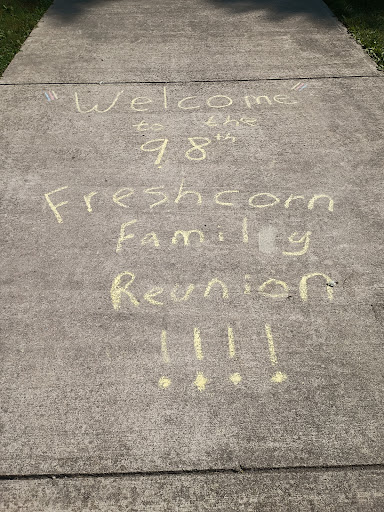 "Welcome"
to the
98th
Freshcorn
Family
Reunion
!!!!